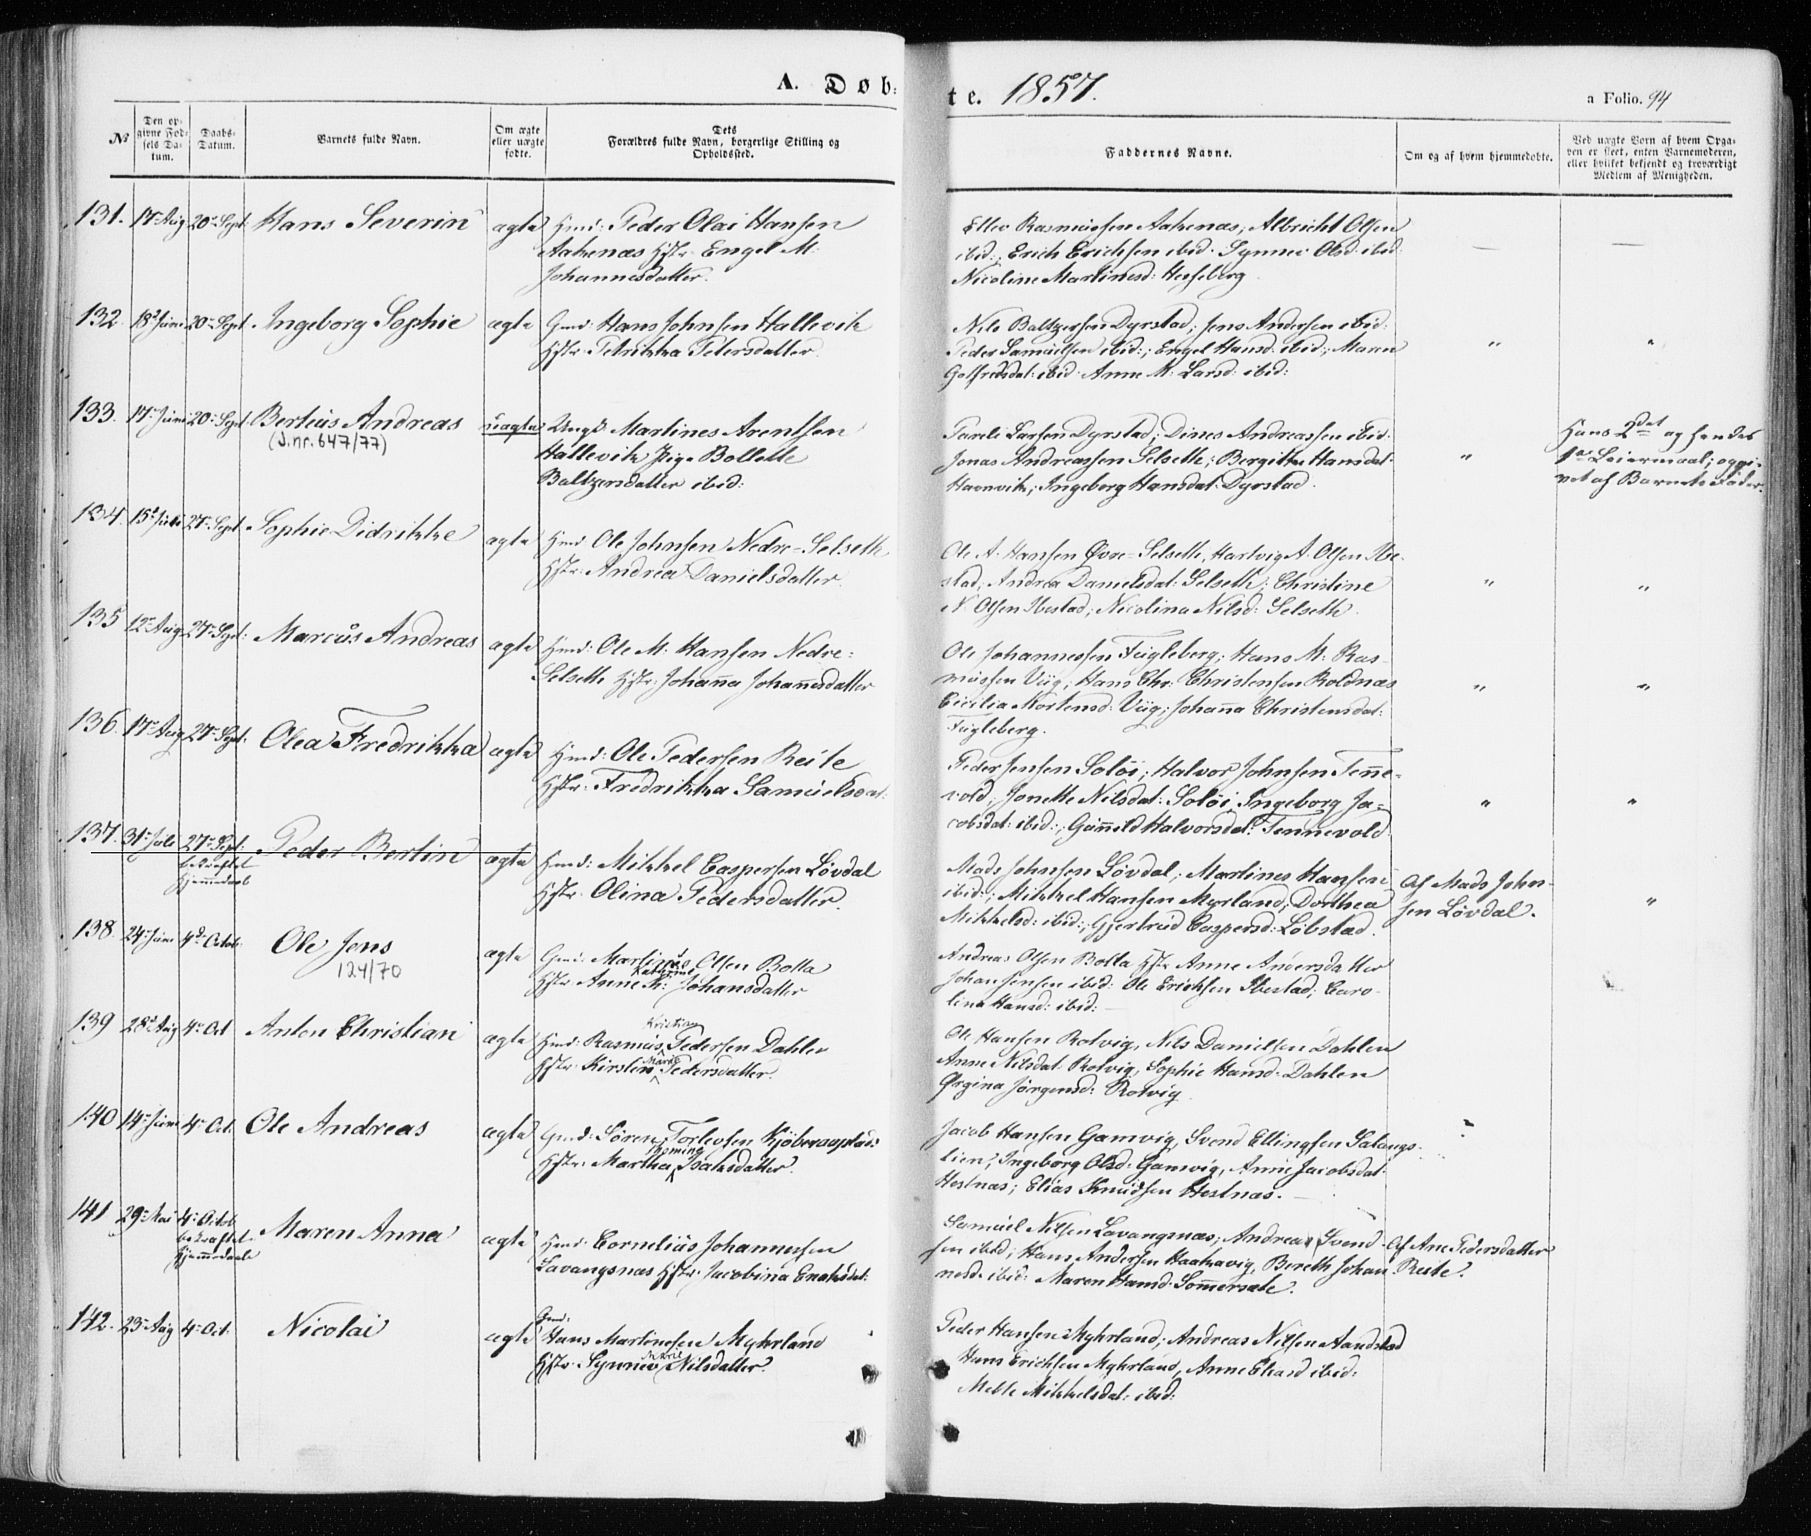 A. Døb:
te. 1857.
a Folio. 94
№
Den op-
givne Fød-
sels Da-
tum.
Daabs-
Datum.
Barnets fulde Navn.
Om ægte
eller uægte
fødte.
Dets
Forældres fulde Navn, borgerlige Stilling og
Opholdssted.
Faddernes Navne.
Om og af hvem hjemmedøbte.
Ved uægte Børn af hvem Opga-
ven er skeet, enten Barnemoderen,
eller hvilket bekjendt og troværdigt
Medlem af Menigheden.
131. 17 Aug 20 Sept Hans Severin ægte Hmd: Peder Olai Hansen
Aakenæs Hstr. Engel M.
Johannesdatter.
Ellev Rasmussen Aakenæs, Albricht Olsen
ibid:, Erich Erichsen ibid. Synnev Olsd: ibid:
Nicoline Martinesd: Hesseberg
132. 18 Juni 20 Sept Ingeborg Sophie ægte Gmd: Hans Johnsen Hallevik
Hstr. Petrikka Petersdatter.
Nils Baltzersen Dyrstad; Jens Andersen ibid:
Peder Samuelsen ibid:; Engel Hansd: ibid:; Maren
Gotfredsdat: ibid. Anne M. Larsd: ibid:
" "
133. 17 Juni 20 Sept Berteus Andreas uægte Ungk. Martines Arentsen
(J.nr. 647/77)
Hallevik Pige Bollette
Baltzersdatter ibid:
Larsen Dyrstad; Dines Andreassen ibid.
Jonas Andreassen Selseth; Bergitte Hansdat:
Havnvik; Ingeborg Hansdat: Dyrstad.
"
Hans 2det og hendes
1te Leiermaal; opgi-
vet af Barnets Fader.
134. 15 27 Sept Sophie Didrikke ægte Hmd Ole Johnsen Nedre-Selseth
Hstr. Andrea Danielsdatter.
Ole A. Hansen Øvre-Selseth, Hartvig A. Olsen Ibe-
stad, Andrea Danielsdat: Selseth; Christine
N. Olsen Ibestad; Nicolina Nilsd: Selseth.
" "
135 12 Aug 27 Sept. Marcus Andreas ægte Hmd: Ole M. Hansen Nedre-
Selseth Hstr. Johanna Johannesdatter
Ole Johannessen Fugleberg; Hans M. Ras-
mussen Viig; Hans Chr. Christensen Roldnæs
Cicilia Mortensd: Viig; Johanna Christensdat:
Fugleberg.
" "
136 17 Aug 27 Sept. Olea Fredrikka ægte Hmd: Ole Pedersen Reite
Hstr. Fredrikka Samuelsdat:
Peder Jensen Soløi; Halvor Johnsen Tenne-
vold, Jonette Nilsdat: Soløi, Ingeborg Ja-
cobsdat: ibid:, Gunnild Halvorsdat: Tennevold.
" "
137. 31 Juli 27 Sept: Peder Bertin ægte Hmd: Mikkel Caspersen Løvdal
bekræftet
Hjemmedaab
Hstr. Olina Pedersdatter.
Mads Johnsen Løvdal; Martines Hansen
ibid:; Mikkel Hansen Myrland; Dorthea
Mikkelsd: ibid:; Gjertrud Caspersd: Løbstad.
Af Mads John-
sen Løvdal.
"
138. 24 Juni 4 Octob. Ole Jens ægte Gmd. Martinus Olsen Bolla
124/70
Kathrine
Hstr. Anne K. Johansdatter
Andreas Olsen Bolla Hstr. Anne Andersdatter
Johan Jensen ibid: Ole Erichsen Ibestad; Caro-
lina Hansd: ibid:
139 28 Aug 4 Oct Anton Christian ægte Hmd: Rasmus Pedersen Dahlen
Kristian
Marie
Hstr. Kirstin Pedersdatter.
Ole Hansen Rotvig, Nils Danielsen Dahlen
Anne Nilsdat: Rotvig, Sophie Hansd: Dahlen
Ørgina Jørgensd: Rotvig
140 14 Juni 4 Oct. Ole Andreas ægte Gmd: Søren Torlevsen
Hstr. Martha Isaksdatter.
Jacob Hansen Gamvig, Svend Ellingsen Salangs-
lien, Ingeborg Olsd: Gamvig, Anne Jacobsdat.
Hestnæs; Elias Knudsen Hestnæs.
141 29 Mai 4 Octob Maren Anna ægte Hmd. Cornelius Johannessen
bekræftet
Hjemmedaab
Lavangsnæs Hstr. Jacobina Enoksdat:
Samuel Nilsen Lavangnæs, Andreas Svend-
sen ibid; Hans Andersen Haakavig, Bereth Johan-
nesd: ibid: Maren Hansd: Sommersæte.
Af Ane Pedersdatter
Reite.
142. 23 Aug 4 Oct. Nicolai ægte Gmd:
Hans Martinesen Myhrland
Marie
Hstr. Synnev Nilsdatter.
Peder Hansen Myhrland; Andreas Nilsen Aandstad
Hans Erichsen Myhrland, Anne ibid:
Mette Mikkelsdat: ibid: